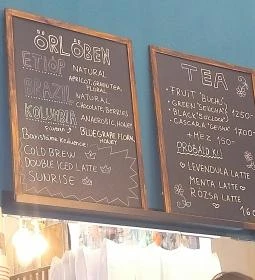 ŐRLŐBEN
ETIÓP NATURAL
APRICOT, GREEN TEA,
FLORAL
BRAZIL NATURAL
CHOCOLATE, BERRIES
KOLUMBIA ANAEROBIC, HONEY
BLUEGRAPE, FLORAL,
HONEY
Baristáink kedvence:
COLD BREW
DOUBLE ICED LATTE
SUNRISE
TEA
• FRUIT "BUCHS"
• GREEN "SENCHA" 1250-
• BLACK
• CASCARA "GEISHA" 1700-
+MÉZ 150-
PRÓBÁLD KI!
LEVENDULA LATTE
MENTA LATTE
RÓZSA LATTE